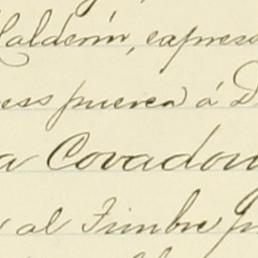 Calderón, expreso
ess puerca á D
a Covadon
al Timbre p